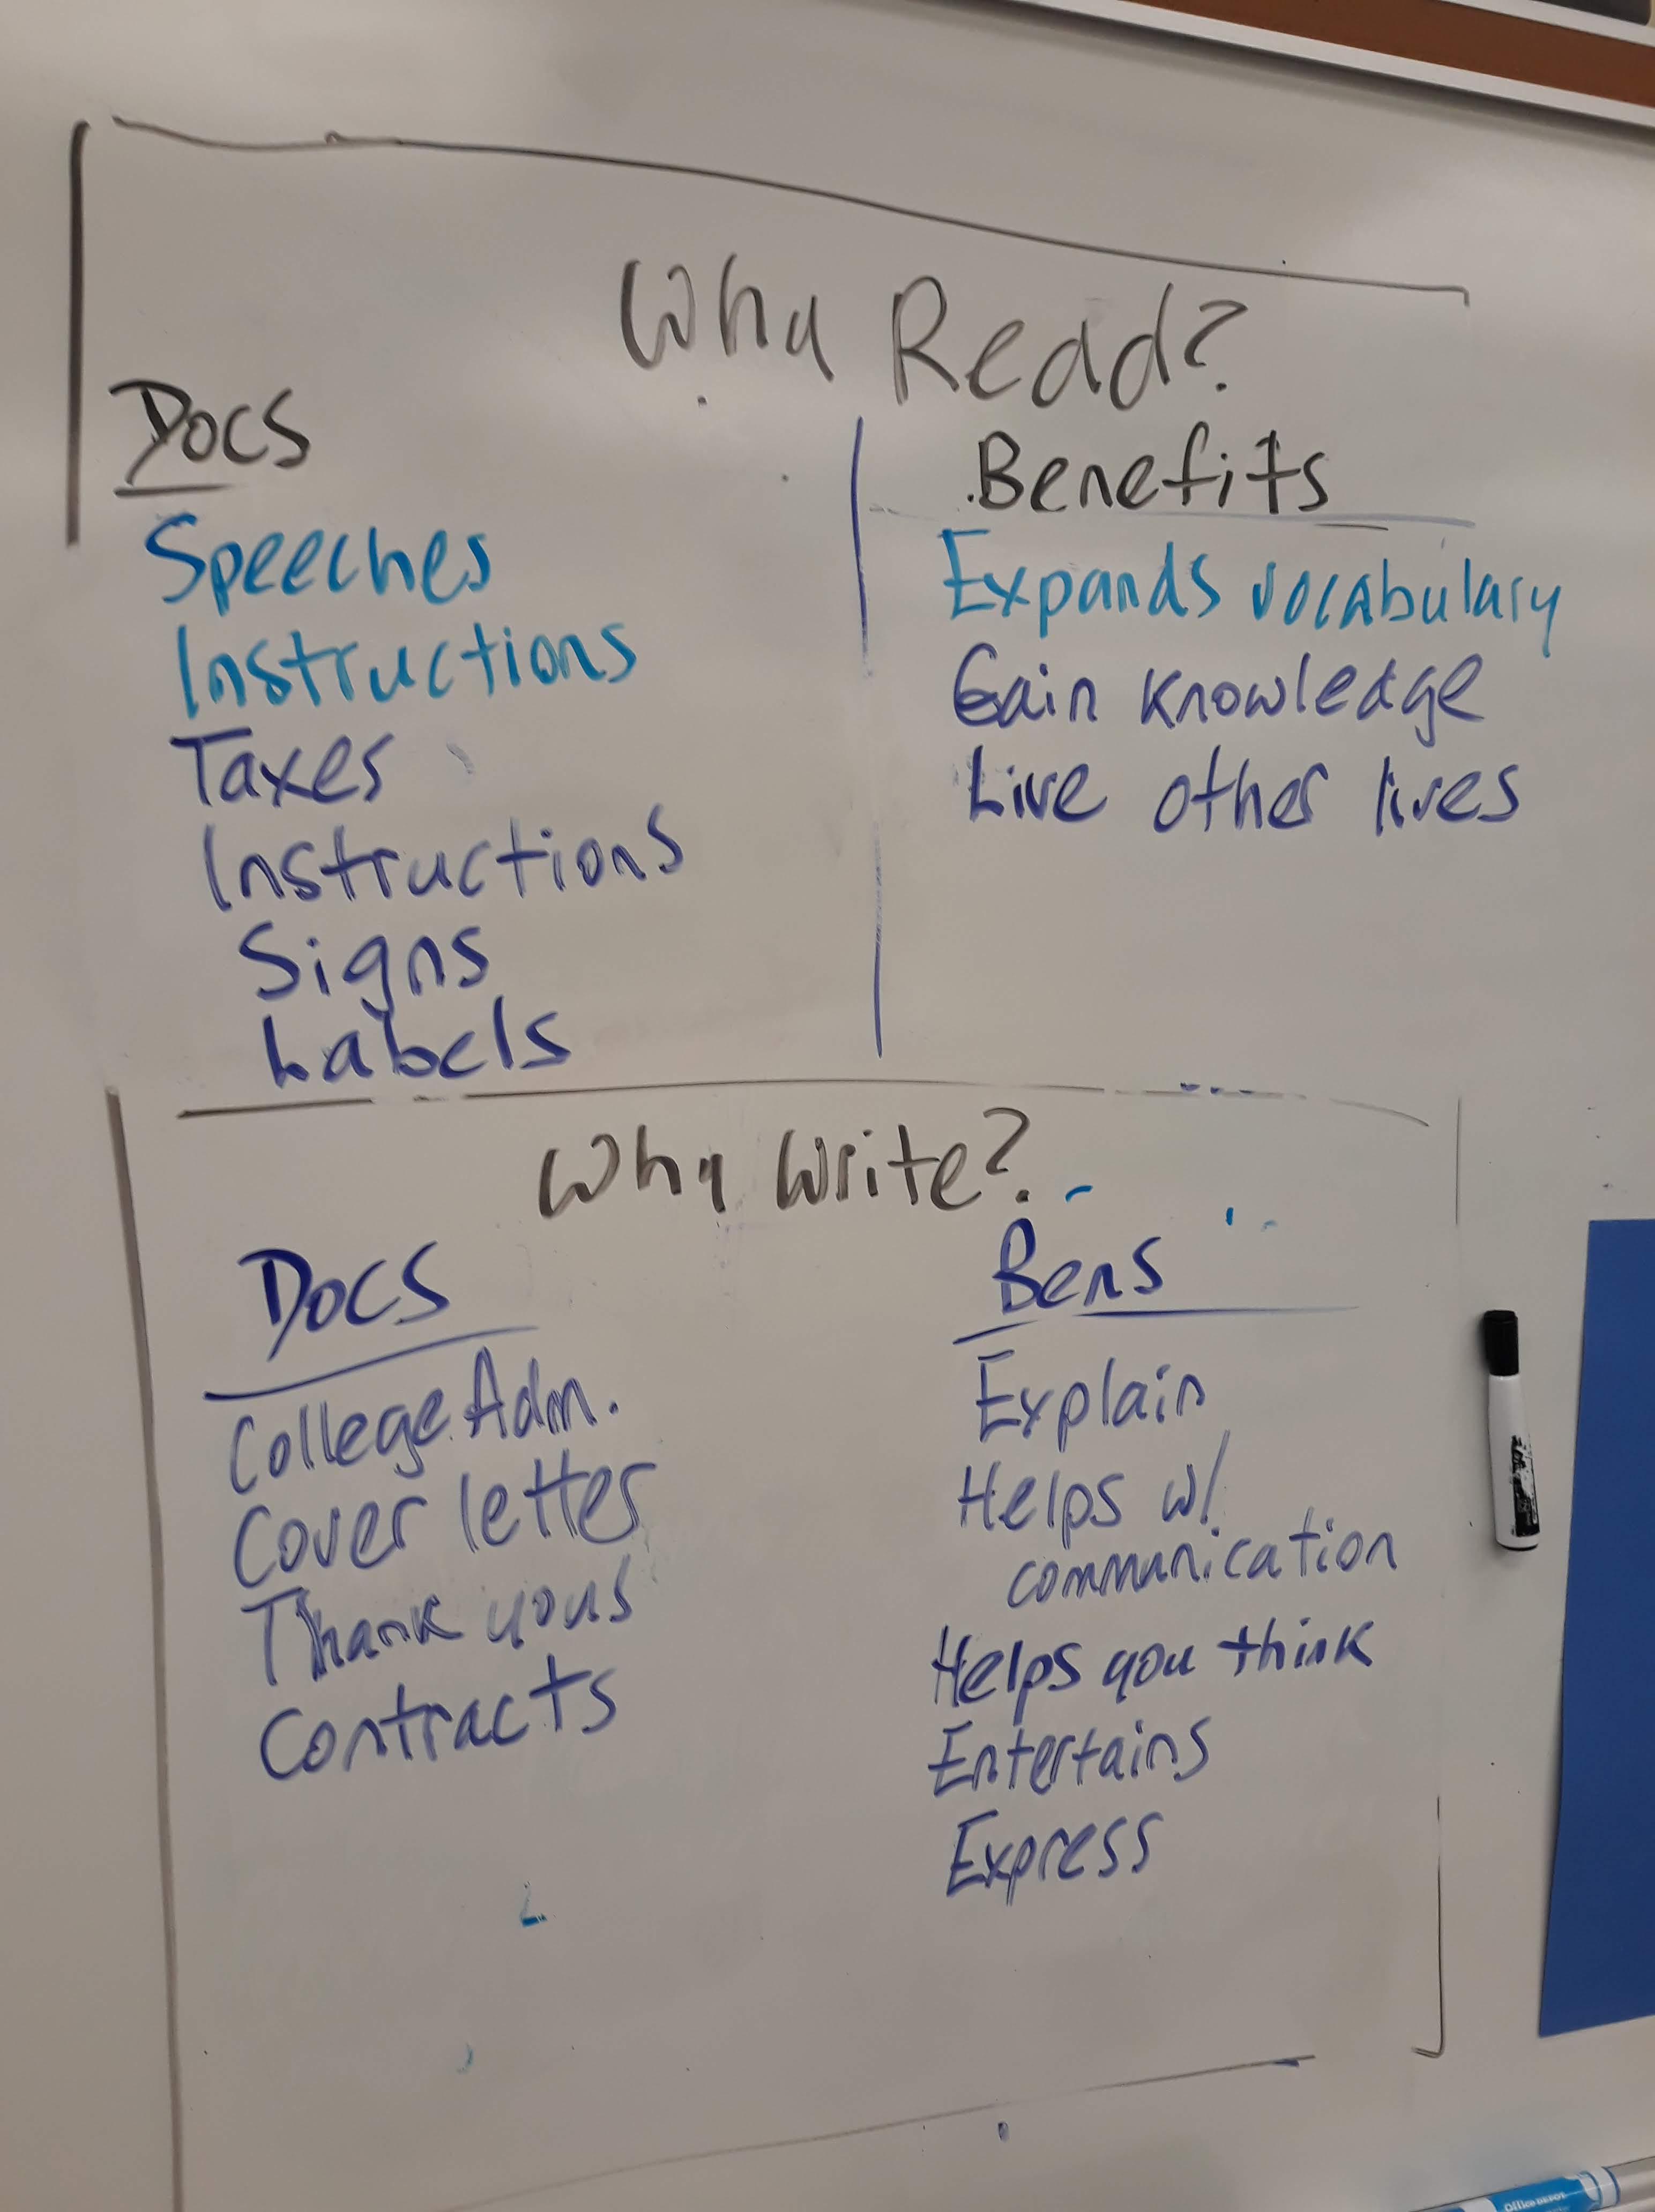 Why Read?
Docs
Speeches
Instructions
Taxes
Instructions
Signs
Labels
Benefits
Expands vocabulary
Gain knowledge
Live other lives
Why Write?
Docs
College Adm.
Cover letter
Thank yous
Contracts
Bens
Explain
Helps w/
communication
Helps you think
Entertains
Express
Office DEPOT